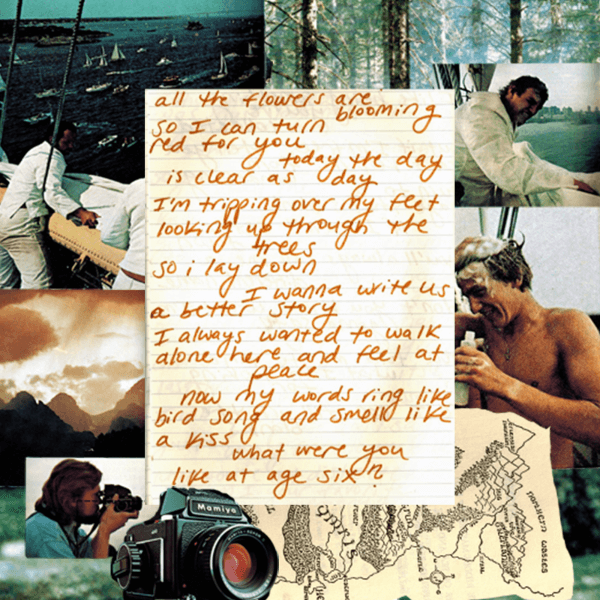 all the flowers are
blooming
so I can turn
red for you
today the day
is clear as day
I'm tripping over my feet
looking up through the
trees
so i lay down
I wanna write us
a better story
I always wanted to walk
alone here and feel at
peace
now my words ring like
bird song and smell like
a kiss
what were you
like at age six?
Mamiya
northern wastes